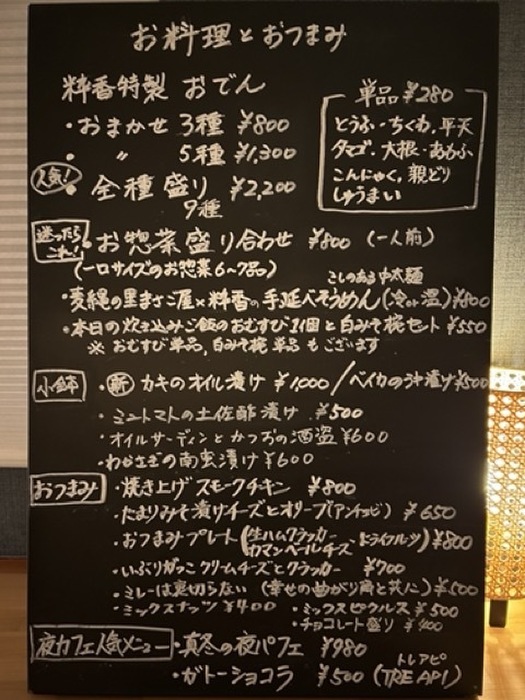 お料理とおつまみ
料香特製 おでん
・おまかせ 3種 ¥800
・ 〃 5種 ¥1,300
人気! ・全種盛り ¥2,200
9種
単品 ¥280
とうふ・ちくわ・平天
タマゴ・大根・あわふ
こんにゃく, 親どり
しゅうまい
迷ったらこれ! ・お惣菜盛り合わせ ¥800 (一人前)
(一口サイズのお惣菜6〜7品)
こしのある中太麺
・麦縄の里まさご屋×料香の手延べそうめん(冷or温)¥800
・本日の炊き込みご飯のおむすび1個と白みそ椀セット ¥550
※ おむすび単品, 白みそ椀 単品 もございます
小鉢 ・新 カキのオイル漬け ¥1,000 / ベイカのうま漬け¥500
・ミニトマトの土佐酢漬け ¥500
・オイルサーディンとかつおの酒盗 ¥600
・わかさぎの南蛮漬け ¥600
おつまみ ・焼き上げスモークチキン ¥800
・たまりみそ漬けチーズとオリーブ(アンチョビ) ¥650
・おつまみプレート (生ハムクラッカー・ドライフルーツ) ¥800
カマンベールチーズ
・いぶりがっこクリームチーズとクラッカー ¥700
・ミレーは裏切らない (幸せの曲がり角と共に) ¥500
・ミックスナッツ ¥400 ・ミックスピクルス ¥500
・チョコレート盛り ¥400
夜カフェ人気メニュー ・真冬の夜パフェ ¥980
トレアピ
・ガトーショコラ ¥500 (TRE API)